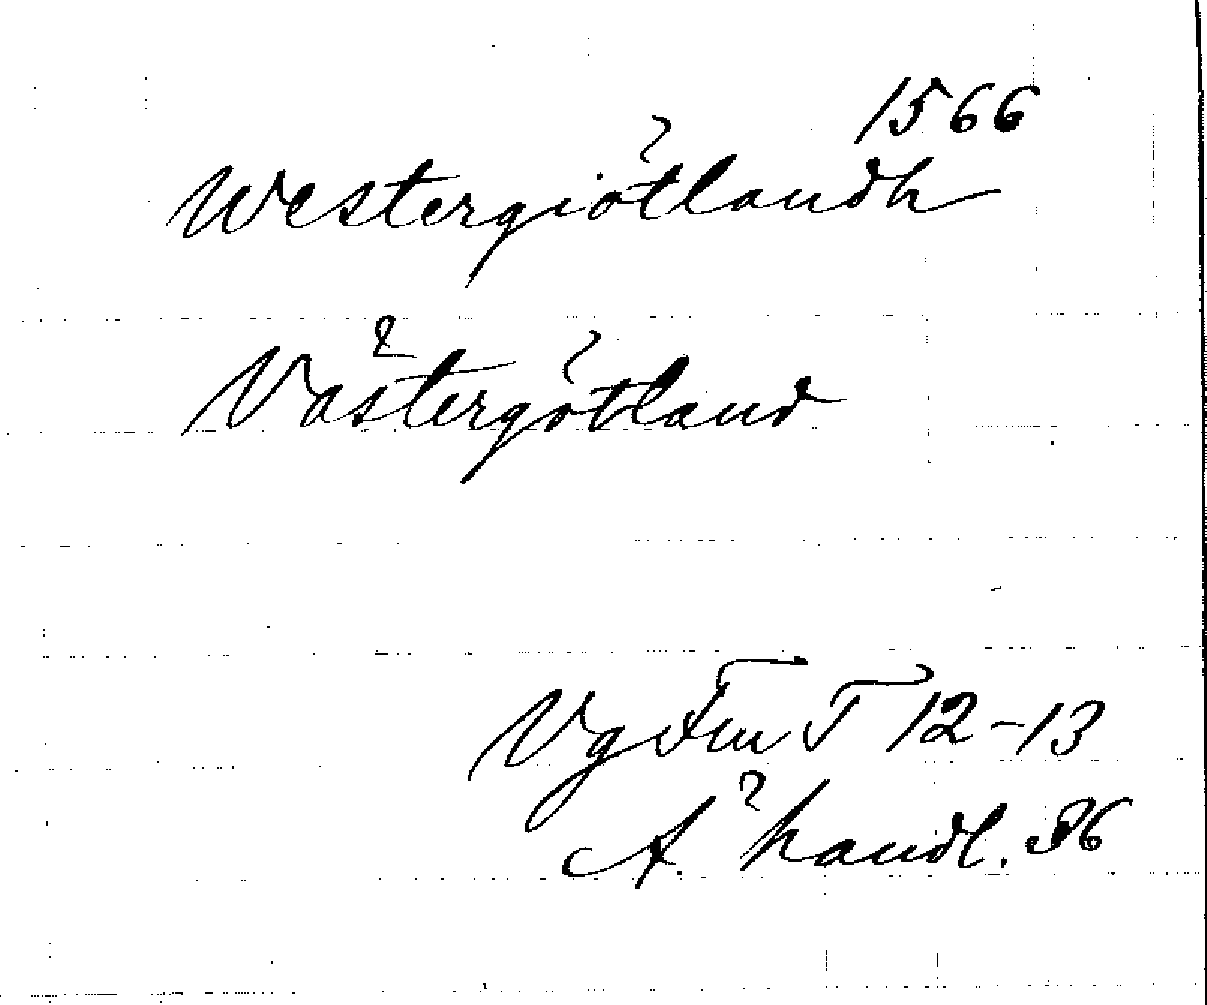 1566
Westergiötlandh
Västergötland
VgFmT 12-13
A. handl. 86